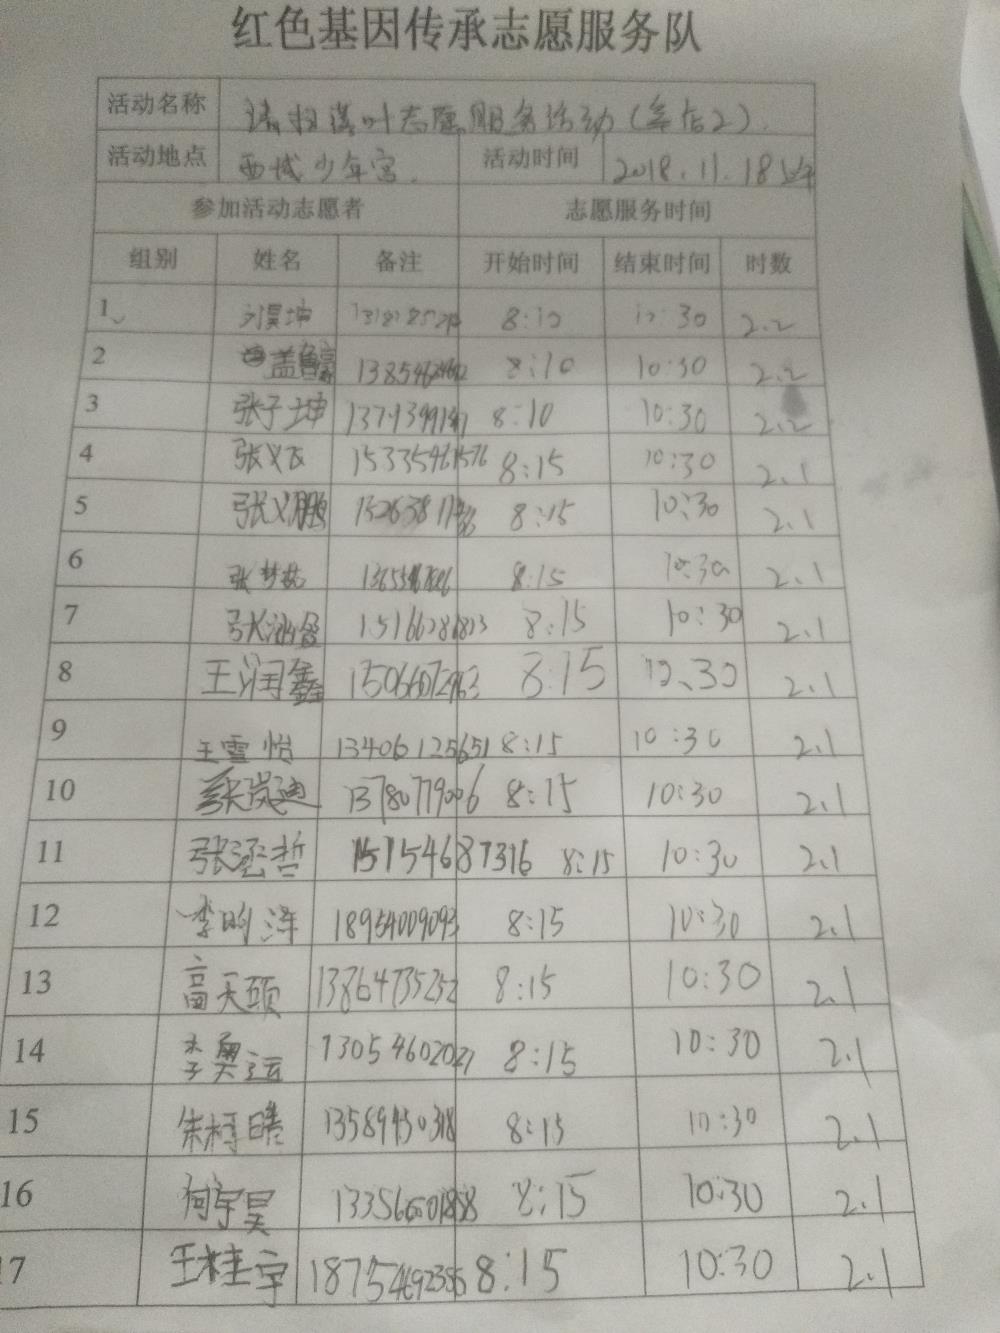 红色基因传承志愿服务队
活动名称 清扫落叶志愿服务活动
活动地点 西城少年宫 活动时间 2018.11.18上午
参加活动志愿者 志愿服务时间
组别 姓名 备注 开始时间 结束时间 时数
1 刘昊坤 8:10 10:30 2.2
2 8:10 10:30 2.2
3 张子坤 8:10 10:30 2.2
4 张义飞 15335461576 8:15 10:30 2.1
5 张义鹏 8:15 10:30 2.1
6 张梦茹 8:15 10:30 2.1
7 8:15 10:30 2.1
8 王润鑫 8:15 10:30 2.1
9 王雪怡 13406125651 8:15 10:30 2.1
10 13780779006 8:15 10:30 2.1
11 张涵哲 15154687316 8:15 10:30 2.1
12 18954009093 8:15 10:30 2.1
13 高天硕 13864735252 8:15 10:30 2.1
14 李奥运 13054602021 8:15 10:30 2.1
15 朱柯晴 13589450318 8:15 10:30 2.1
16 何宇昊 8:15 10:30 2.1
17 王桂宇 8:15 10:30 2.1